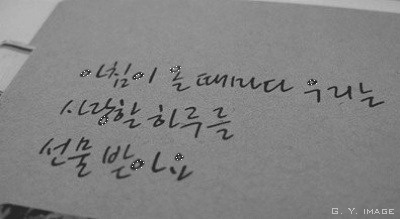 아침이 올 때마다 우리는
사랑할 하루를
선물 받아요
G. Y. IMAGE